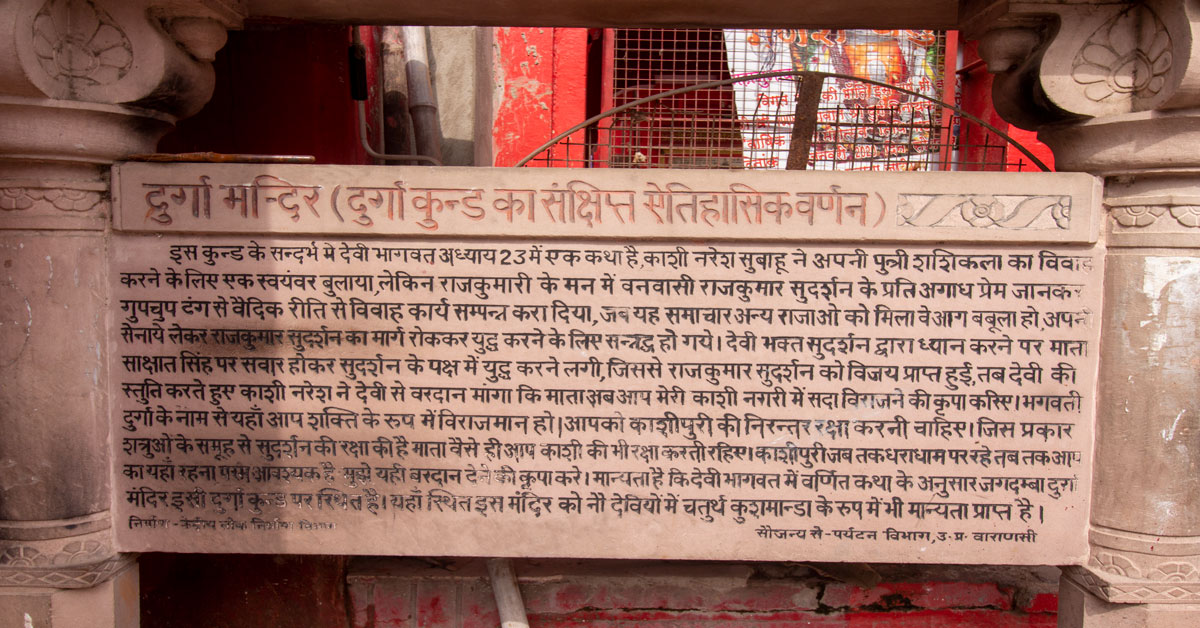 की भाँति इस
दुर्गा मन्दिर (दुर्गा कुन्ड का संक्षिप्त ऐतिहासिक वर्णन)
इस कुन्ड के सन्दर्भ मे देवी भागवत अध्याय 23 में एक कथा है, काशी नरेश सुबाहू ने अपनी पुत्री शशिकला का विवाह
करने के लिए एक स्वयंवर बुलाया, लेकिन राजकुमारी के मन में वनवासी राजकुमार सुदर्शन के प्रति अगाध प्रेम जानकर
गुपचुप टंग से वैदिक रीति से विवाह कार्य सम्पन्न करा दिया, जब यह समाचार अन्य राजाओ को मिला वे आग बबूला हो, अपनी
सेनाये लेकर राजकुमार सुदर्शन का मार्ग रोककर युद्ध करने के लिए सन्नद्ध हो गये। देवी भक्त सुदर्शन द्वारा ध्यान करने पर माता
साक्षात सिंह पर सवार होकर सुदर्शन के पक्ष में युद्ध करने लगी, जिससे राजकुमार सुदर्शन को विजय प्राप्त हुई, तब देवी की
स्तुति करते हुए काशी नरेश ने देवी से वरदान मांगा कि माता अब आप मेरी काशी नगरी में सदा विराजने की कृपा करिए। भगवती
दुर्गा के नाम से यहाँ आप शक्ति के रुप में विराजमान हो। आपको काशीपुरी की निरन्तर रक्षा करनी चाहिए। जिस प्रकार
शत्रुओ के समूह से सुदर्शन की रक्षा की है माता वैसे ही आप काशी की भी रक्षा करती रहिए। काशीपुरी जब तक धराधाम पर रहे तब तक आप
का यहाँ रहना परम आवश्यक है मुझे यही वरदान देने की कृपा करे। मान्यता है कि देवी भागवत में वर्णित कथा के अनुसार जगदम्बा दुर्गा
मंदिर इसी दुर्गा कुन्ड पर स्थित है। यहाँ स्थित इस मंदिर को नौ देवियों में चतुर्थ कुशमान्डा के रुप में भी मान्यता प्राप्त है।
निर्माण - केन्द्रीय लोक निर्माण विभाग
सौजन्य से - पर्यटन विभाग, उ.प्र. वाराणसी